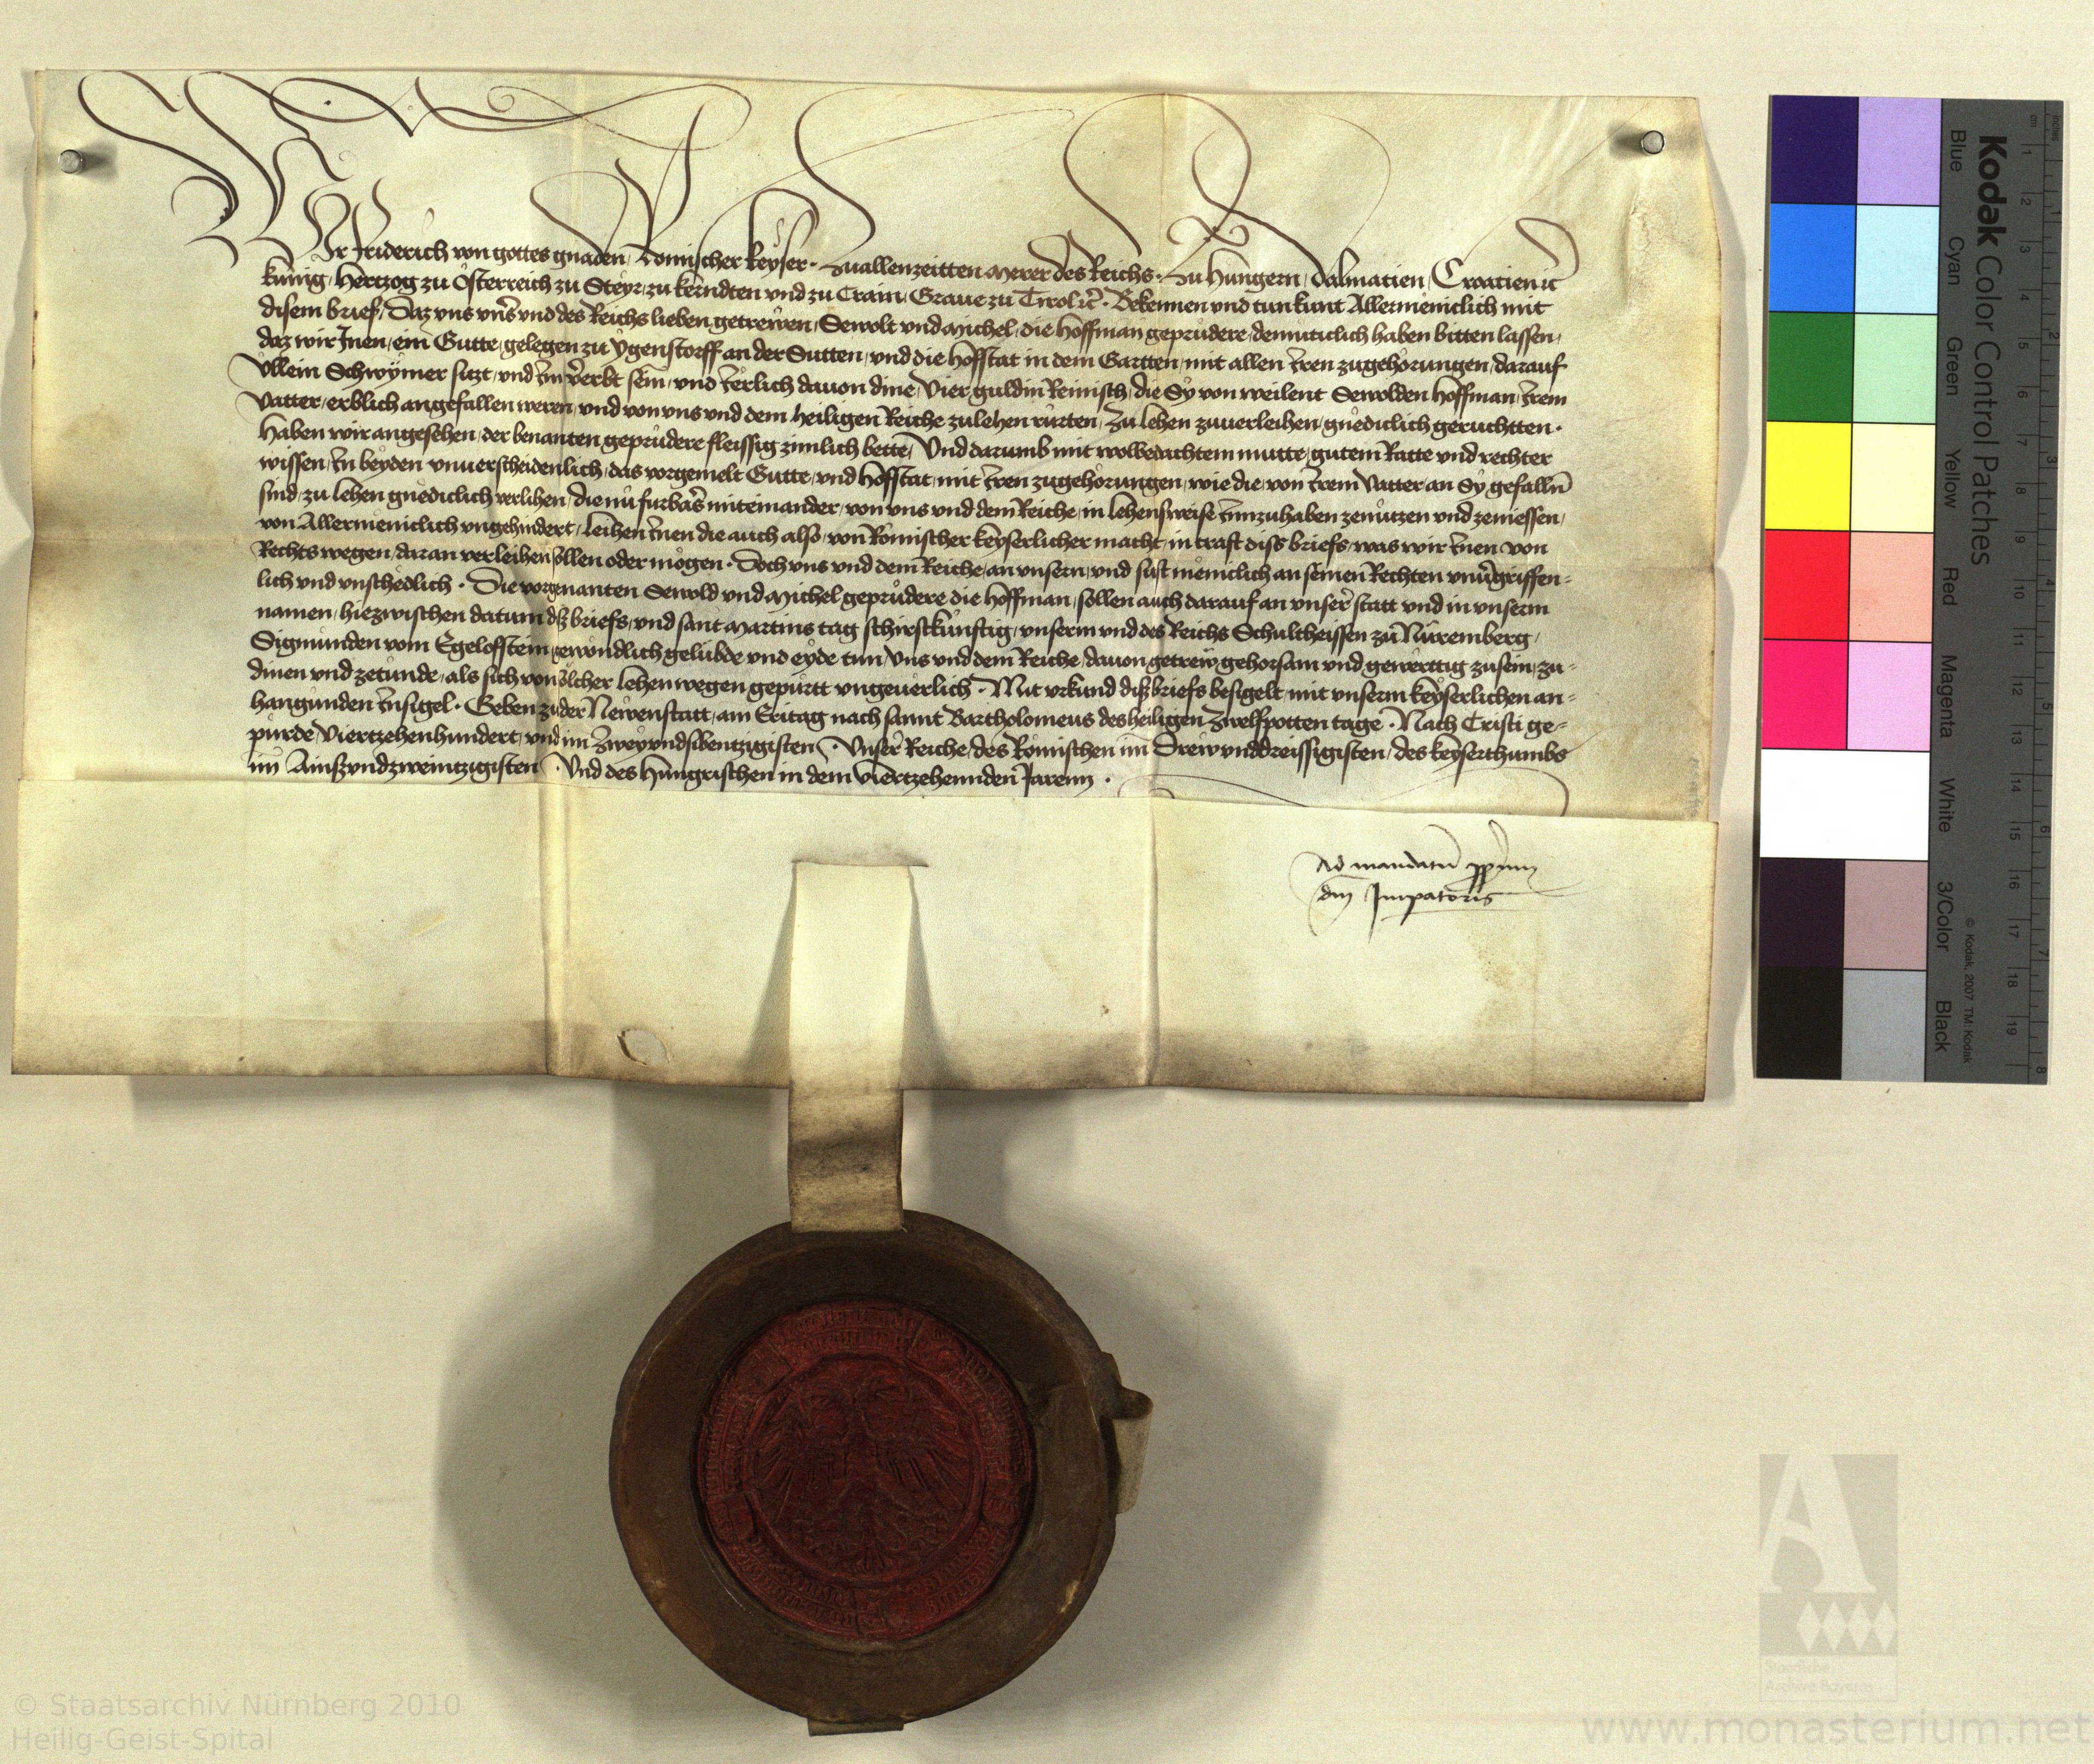 Wir Friderich von gottes gnaden Romischer keyser · Zuallenzeitten Merer des Reichs · Zu Hungern, Dalmatien, Croatien ꝛc
kunig, Hertzog zu Osterreich zu Steyr, zu kerndten und zu Crain, Graue zu Tirol ꝛc · Bekennen und tun kunt Allermeniclich mit
disem brief, Daz vns vnser vnd des Reichs lieben getrewen, Sewolt vnd Michel, die Hoffman geprudere, demuticlich haben bitten lassen,
daz wir Jnen, ein Gutte, gelegen zu Ygenstorff an der Sutten, vnd die Hofstat in dem Gartten, mit allen iren zugehorungen, darauf
Vllein Schwymer sitzt, vnd im vererbt sein, vnd ierlich dauon dine, vier guldin Reinisch, die Sy von weilent Sewolden Hoffman, irem
Vatter, erblich angefallen weren, vnd von vns vnd dem heiligen Reiche zu lehen rurten, Zu lehen zuuerleihen, gnediclich geruchtten ·
Haben wir angesehen, der benanten geprudere fleissig zimlich bette, Vnd darumb mit wolbedachtem mutte, gutem Ratte vnd rechter
wissen, in beyden vnuerscheidenlich, das vorgemelt Gutte, vnd Hofstat, mit iren zugehorungen, wie die, von irem Vatter an Sy gefallen
sind, zu lehen gnediclich verlihen, die nu furbas miteinander, von vns vnd dem Reiche, in lehensweise Innzuhaben zenutzen vnd zeniessen,
von Allermeniclich vngehindert, leihen inen die auch also, von Romischer keyserlicher macht, in craft diss briefs, was wir inen von
Rechts wegen, daran verleihen sollen oder mogen · Doch vns vnd dem Reiche, an vnsern, vnd sust meniclich an seinen Rechten vnuergriffen=
lich vnd vnschedlich · Die vorgenanten Sewold vnd Michel geprudere die Hoffman, sollen auch darauf an vnser statt vnd in vnserm
namen, hiezwischen datum diß briefs, vnd sant Martins tag schirstkunftig, vnserm vnd des Reichs Schultheissen zu Nuremberg,
Sigmunden vom Egeloffstein gewondlich gelubde vnd eyde tun, vns vnd dem Reiche, dauon getrew gehorsam vnd gewerttig zusein, zu=
dinen vnd zetunde, als sich von solcher lehen wegen gepurtt vngeuerlich · Mit vrkund diß briefs besigelt, mit vnserm keyserlichen an=
hangunden insigel · Geben zu der Newenstatt, am Eritag nach sannt Bartholomeus des heiligen Zwelfpotten tage · Nach Cristi ge=
purde, Viertzehenhundert, vnd im Zweyvndsibentzigisten · Vnser Reiche, des Romischen im Drewvnddreissigisten, des keyserthumbs
im Ainßvndzweintzigisten · Vnd des Hungrischen in dem Viertzehennden Jarenn ·
Ad mandatum pprium
dni Impatoris
Kodak Color Control Patches
Blue Cyan Green Yellow Red Magenta White 3/Color Black
© Kodak, 2007 TM: Kodak
© Staatsarchiv Nürnberg 2010
Heilig-Geist-Spital
Staatliche
Archive Bayerns
www.monasterium.net